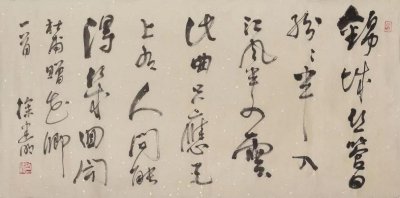 錦城絲管日
紛〻半入
江風半入雲
此曲只應天
上有人間能
得幾回聞
杜甫贈花卿
一首
徐